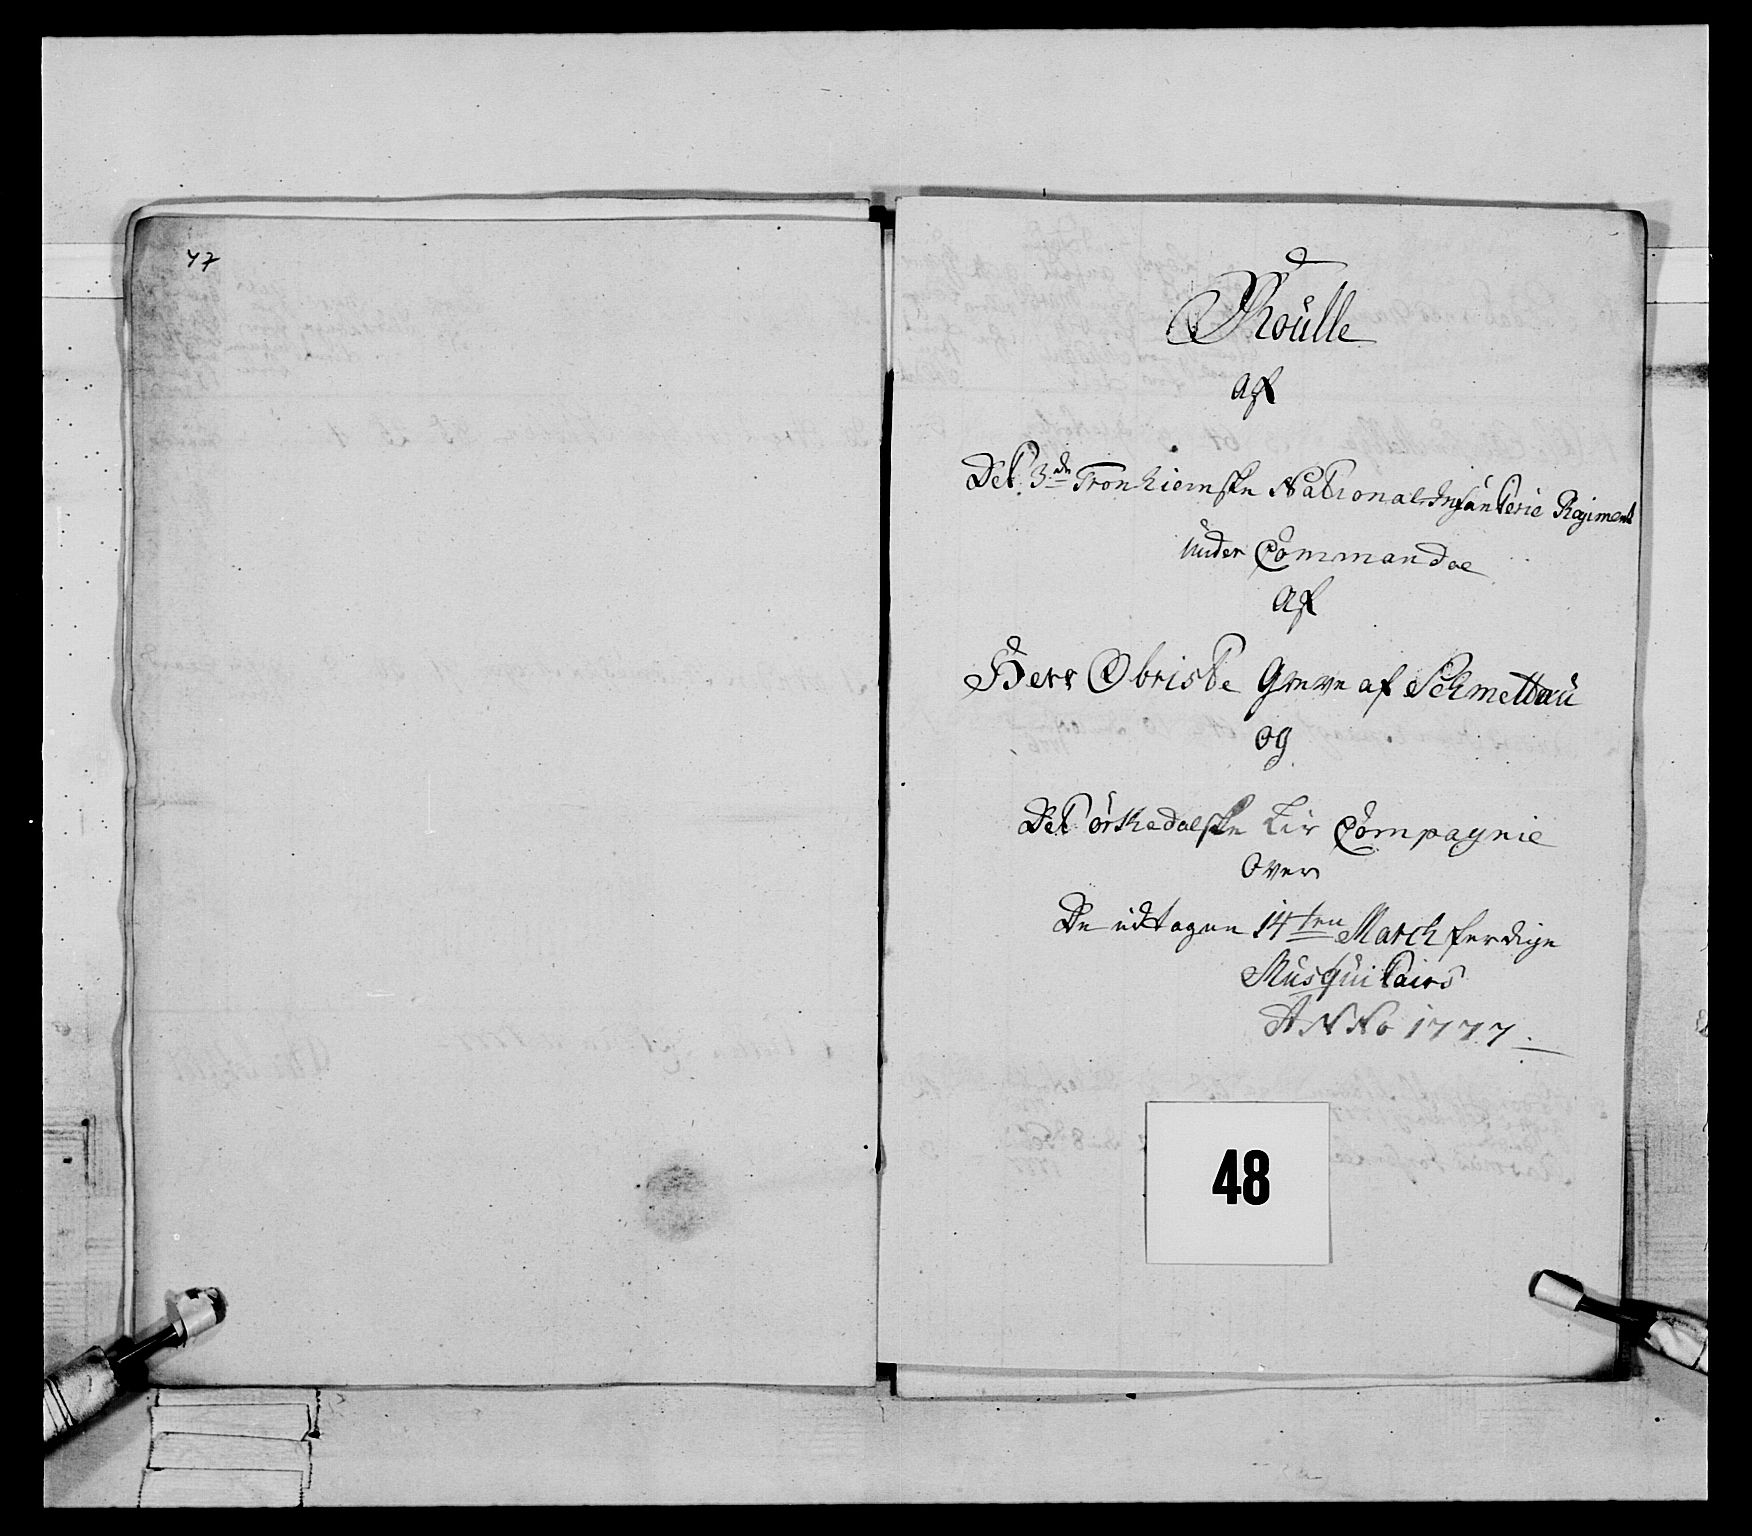 47
Roulle
af
Det 3de Tronhiemske National Infanterie Regiment
under Commandoe
af
Herr Obriste Greve af Schmettau
og
Det Ørkedalske Liv Compagnie
over
De udtagne 14ten March ferdige
Musquitairs
ANNo 1777
48